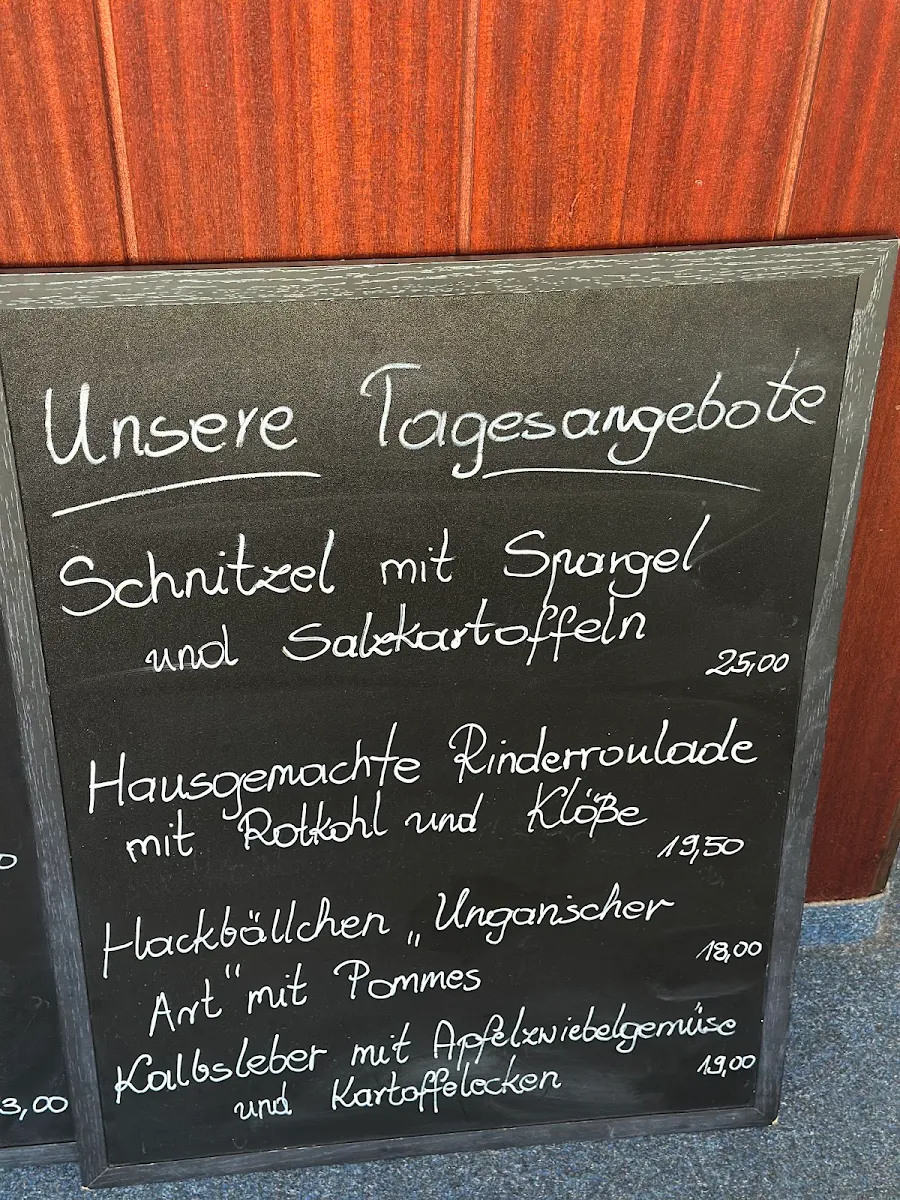 Unsere Tagesangebote
Schnitzel mit Spargel
und Salzkartoffeln
25,00
Hausgemachte Rinderroulade
mit Rotkohl und Klöße
19,50
Hackbällchen „Ungarischer
18,00
Art" mit Pommes
Kalbsleber mit Apfelzwiebelgemüse
19,00
und Kartoffelecken
0
3,00